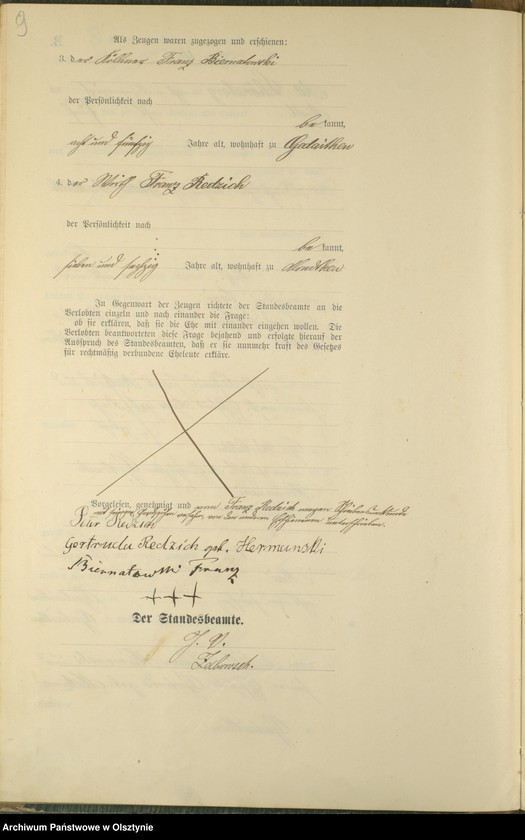 9
Als Zeugen waren zugezogen und erschienen:
3. der Köllmer Franz Biernatowski
der Persönlichkeit nach
be kannt,
acht und fünfzig Jahre alt, wohnhaft zu
4. der Wirth Franz Redzich
der Persönlichkeit nach
be kannt,
sieben und sechzig Jahre alt, wohnhaft zu Mondtken
In Gegenwart der Zeugen richtete der Standesbeamte an die
Verlobten einzeln und nach einander die Frage:
ob sie erklären, daß sie die Ehe mit einander eingehen wollen. Die
Verlobten beantworteten diese Frage bejahend und erfolgte hierauf der
Ausspruch des Standesbeamten, daß er sie nunmehr kraft des Gesetzes
für rechtmäßig verbundene Eheleute erkläre.
Vorgelesen, genehmigt und von Franz Redzich wegen
mit seinem Handzeichen versehen, von den anderen Erschienenen unterschrieben.
Redzich
Gertruda Redzich geb. Hermanski
Biernatowski Franz
+++
Der Standesbeamte.
J. V.